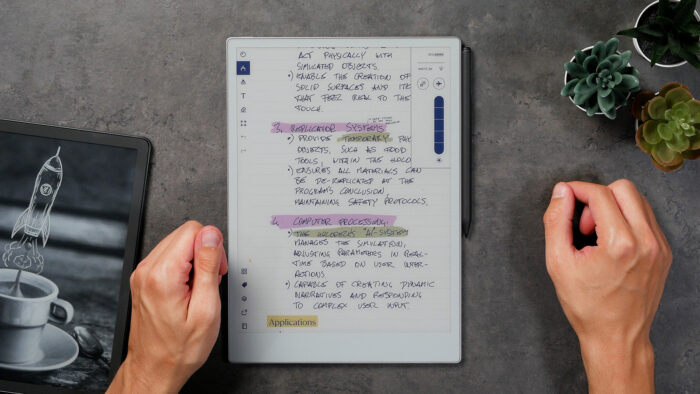 ACT PHYSICALLY WITH
SIMULATED OBJECTS.
•) ENABLE THE CREATION OF
SOLID SURFACES AND ITE
THAT FEEL REAL TO THE
TOUCH.
3. REPLICATOR SYSTEMS
•) PROVIDE TEMPORARY
OBJECTS, SUCH AS FOOD
TOOLS, WITHIN THE HOLO
•) ENSURES ALL MATERIALS CAN
BE DE-REPLICATED AT THE
PROGRAM'S CONCLUSION,
MAINTAINING SAFETY PROTOCOLS.
COMPUTER PROCESSING:
•) THE HOLODECK'S AI-SYSTEM
MANAGES THE SIMULATION,
ADJUSTING PARAMETERS IN REAL-
TIME BASED ON USER INTER-
ACTIONS.
•) CAPABLE OF CREATING DYNAMIC
NARRATIVES AND RESPONDING
TO COMPLEX USER INPUT.
Applications